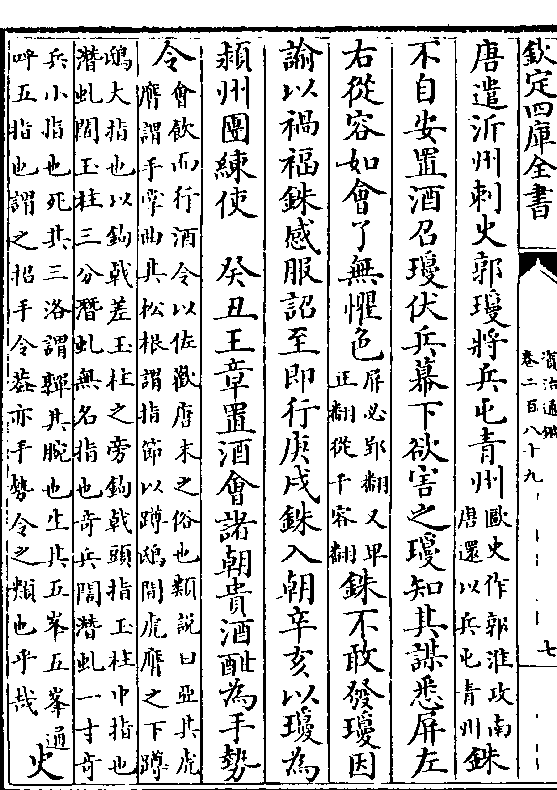 欽定四庫全書
資治通鑑
卷二百八十九
七
唐遣沂州刺史郭瓊將兵屯青州歐史作郭淮攻南唐還以兵屯青州銖
不自安置酒召瓊伏兵幕下欲害之瓊知其謀悉屏左
右從容如會了無懼色屏必郢翻又卑正翻從千容翻銖不敢發瓊因
諭以禍福銖感服詔至即行庚戌銖入朝辛亥以瓊為
潁州團練使　癸丑王章置酒會諸朝貴酒酣為手勢
令會飲而行酒令以佐歡唐末之俗也類說曰亞其虎
膺謂手掌曲其松根謂指節以蹲鴟間虎膺之下蹲
鴟大指也以鉤戟差玉柱之旁鉤戟頭指玉柱中指也
潛虬闊玉柱三分潛虬無名指也奇兵闊潛虬一寸奇
兵小指也死其三洛謂軃其腕也生其五峯五峯通
呼五指也謂之招手令葢亦手勢令之類也乎哉史